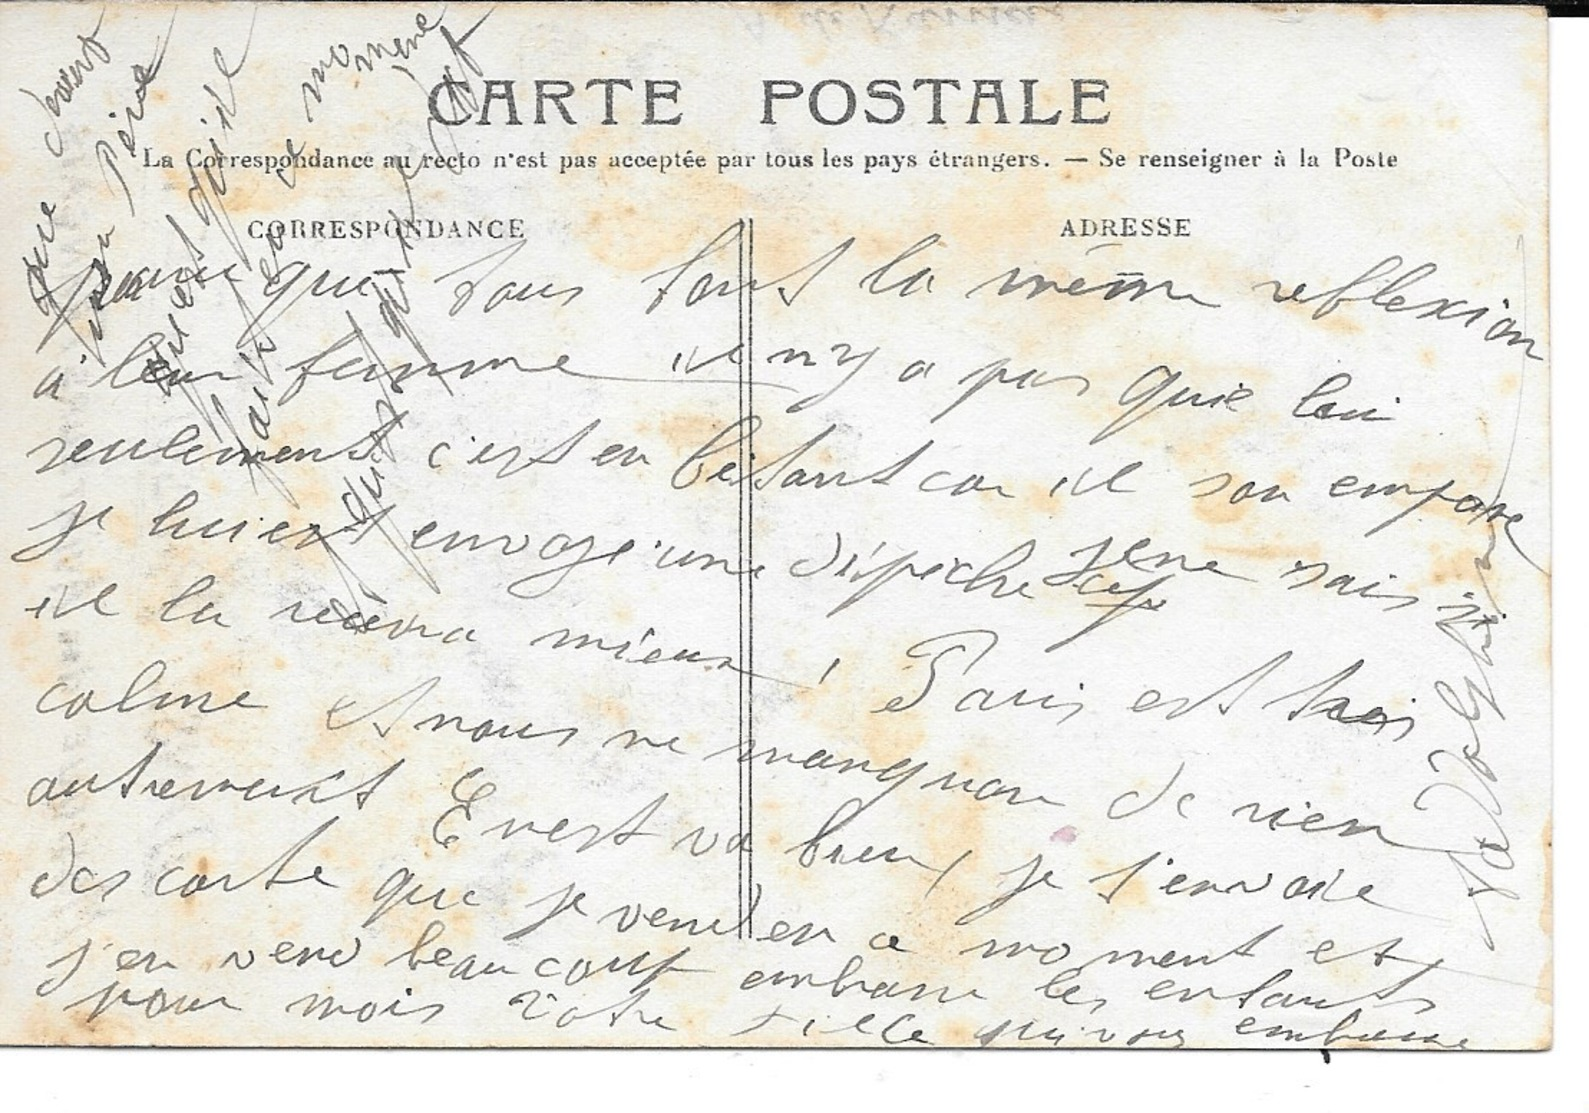 CARTE POSTALE
La Correspondance au recto n'est pas acceptée par tous les pays étrangers. — Se renseigner à la Poste
CORRESPONDANCE
ADRESSE
que tous font la même reflexion
a leur femme il n'y a pas que lui
seulement c'est en bêtant car il son empare
je lui est envoyé une dépiche je ne sais si
il la recevra mieux ! Paris est trais
calme et nous ne manquon de rien
autrement Ernest va bien, je t'envoie
des carte que je vend en ce moment et
j'en vend beaucoup embrasse les enfants
pour mois Votre fille qui vous embrasse
que
Père
qu'il
fait en ce moment
même